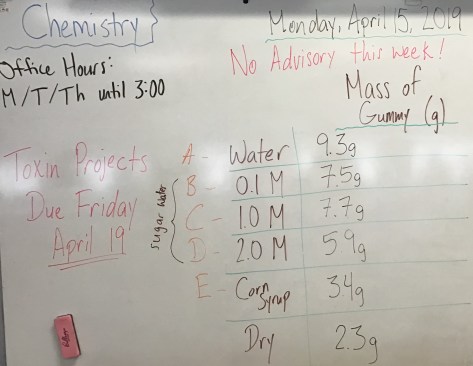 Chemistry
Monday, April 15, 2019
Office Hours:
M/T/Th until 3:00
No Advisory this week!
Mass of
Gummy (g)
Toxin Projects
Due Friday
April 19
sugar water
A - Water 9.3g
B - 0.1 M 7.5g
C - 1.0 M 7.7g
D - 2.0 M 5.9g
E - Corn Syrup 3.4g
Dry 2.3g